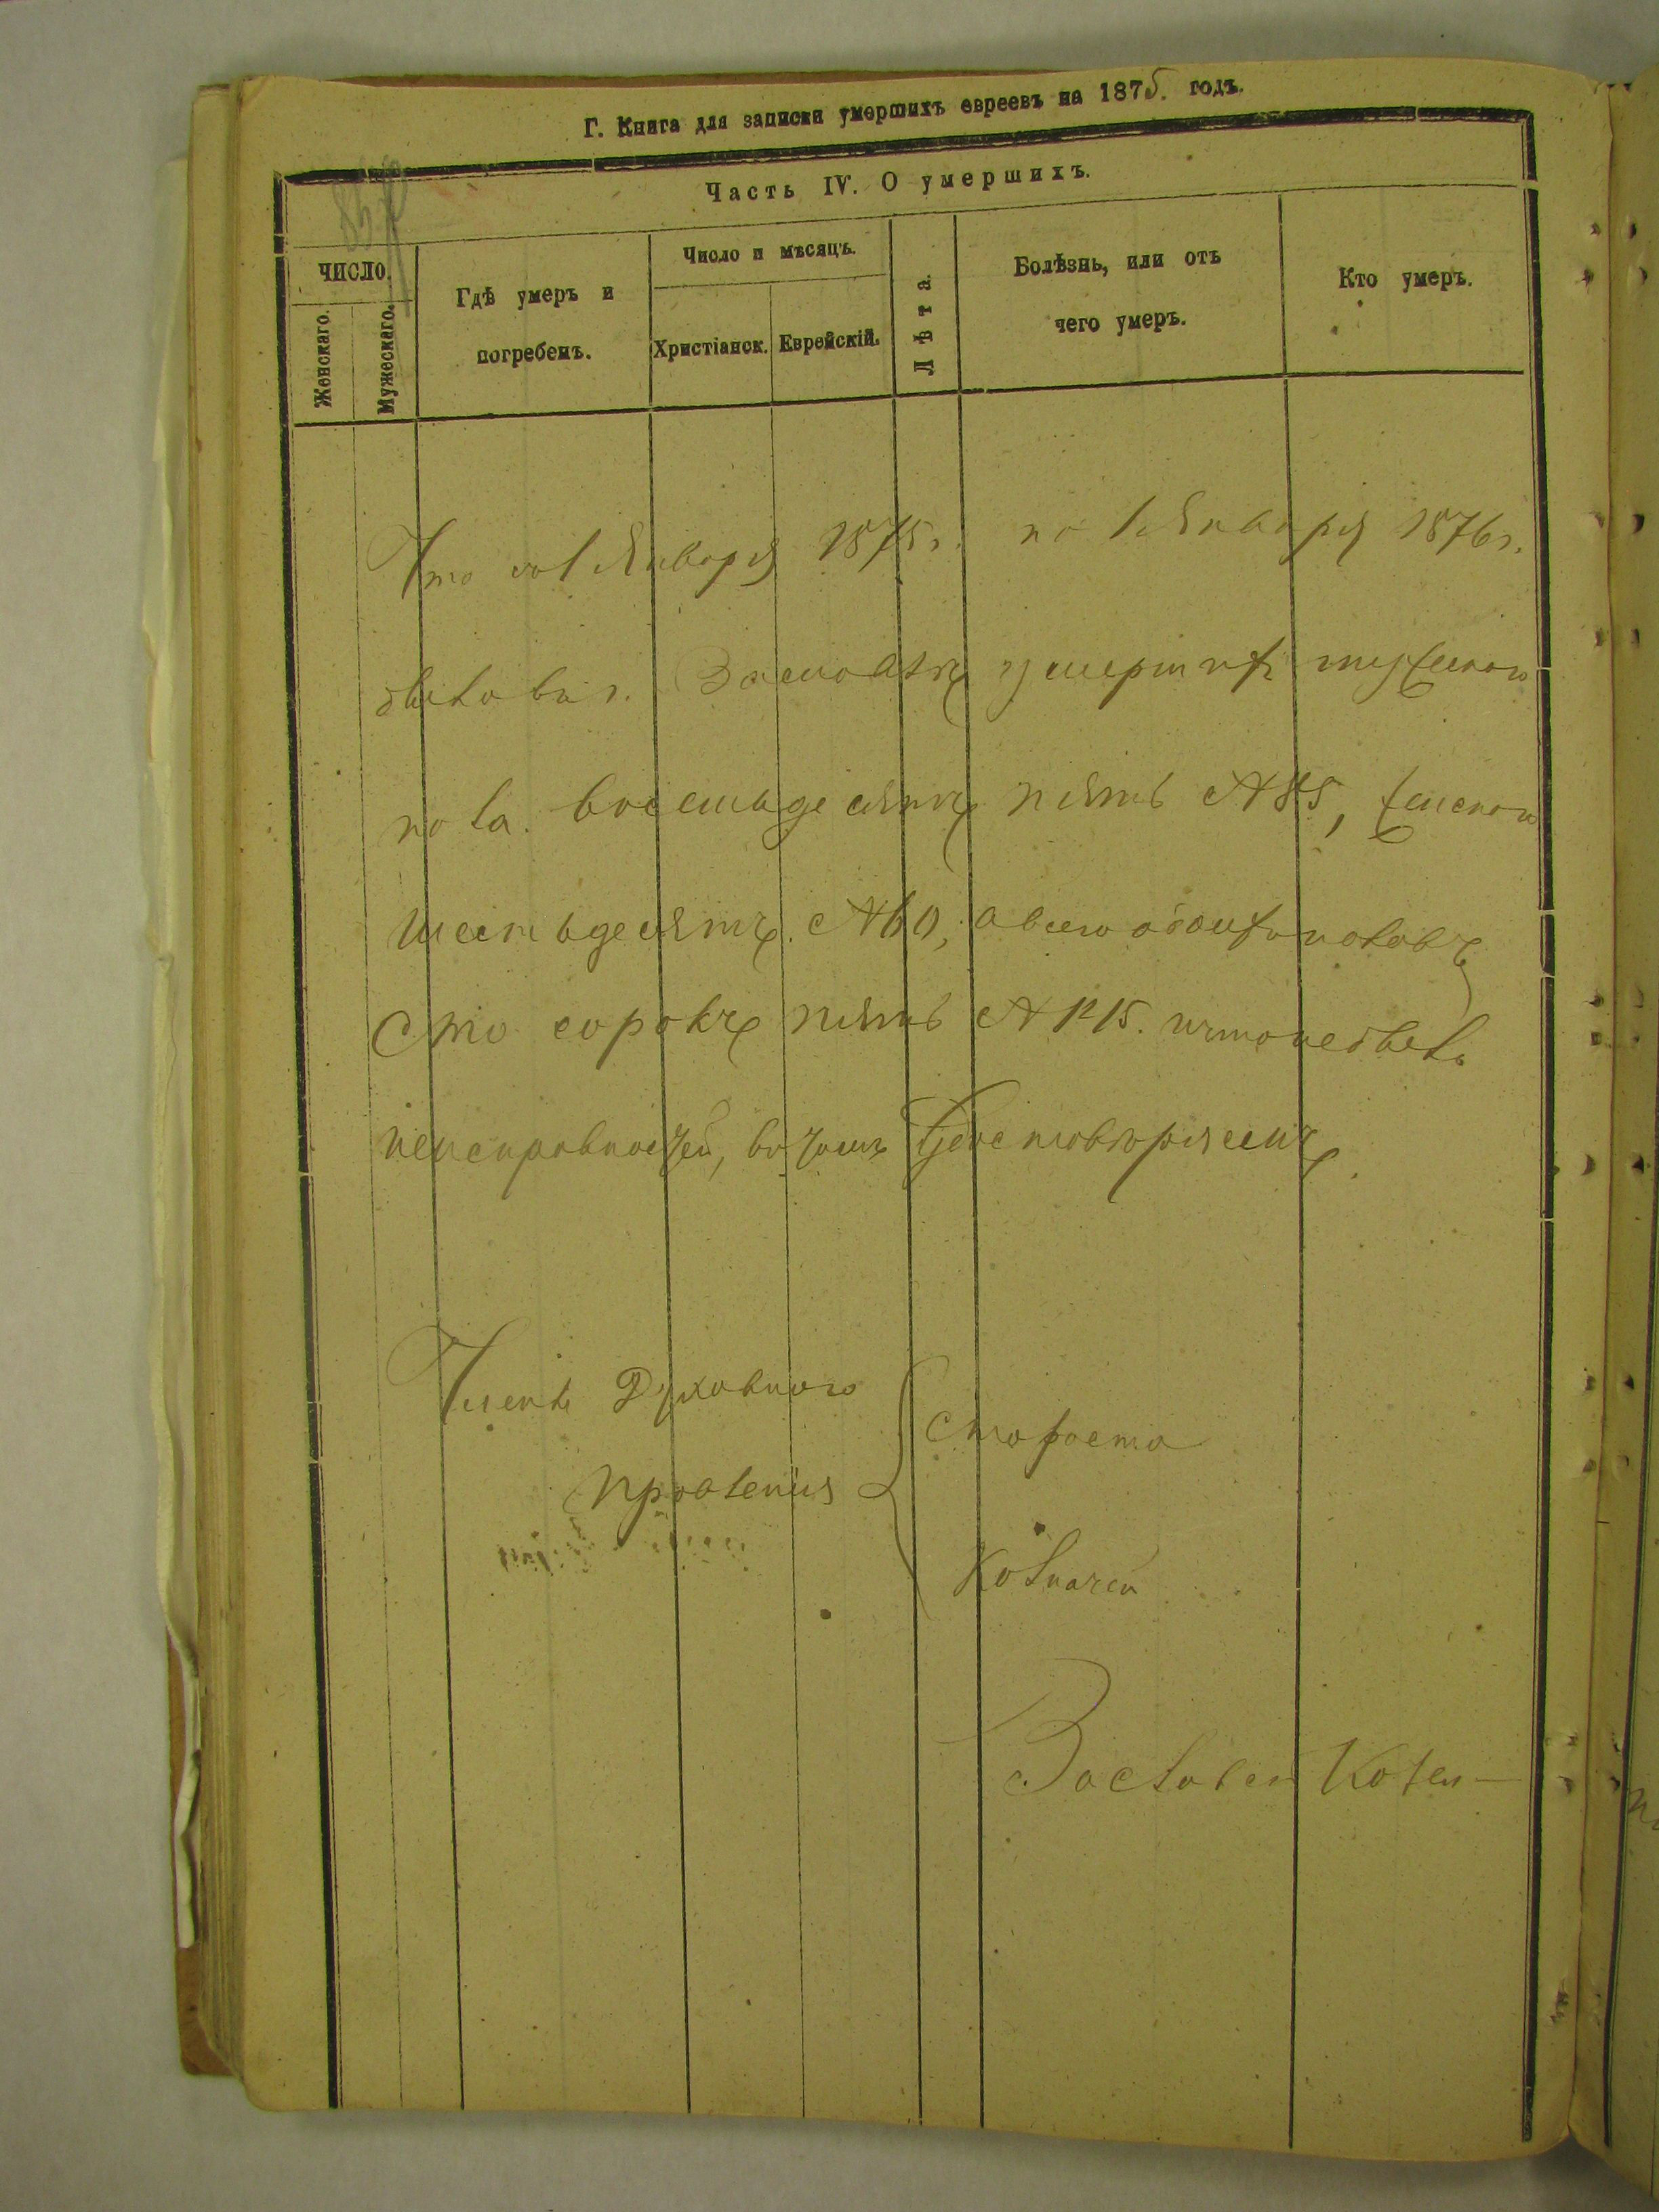 Г. Книга для записки умершихъ евреевъ на 1875. годъ.
Часть IV. О умершихъ.
ЧИСЛО.
Женскаго.
Мужескаго.
Гдѣ умеръ и
погребенъ.
Число и мѣсяцъ.
Христіанск.
Еврейскій.
Лѣта.
Болѣзнь, или отъ
чего умеръ.
Кто умеръ.
Что со 1 Января 1875 г. по 1 Января 1876 г.
умершихъ мужескаго
пола восемьдесятъ пять № 85, женскаго
шестьдесятъ № 60, а всего обоихъ половъ
Сто сорокъ пять № 145. и что не было
неисправностей, въ томъ удостовѣряемъ
Члены Духовнаго
Правленія
Староста
Казначей